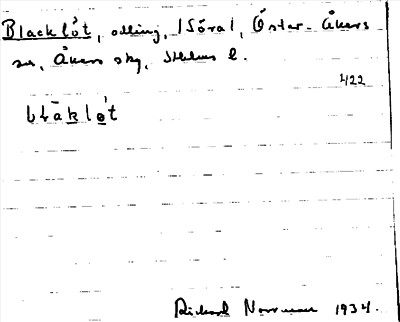 Blacklöt, odling, Söral, Öster-Åkers
sn, Åkers skg, Sthlms l.
422
Richard Norrman 1934.